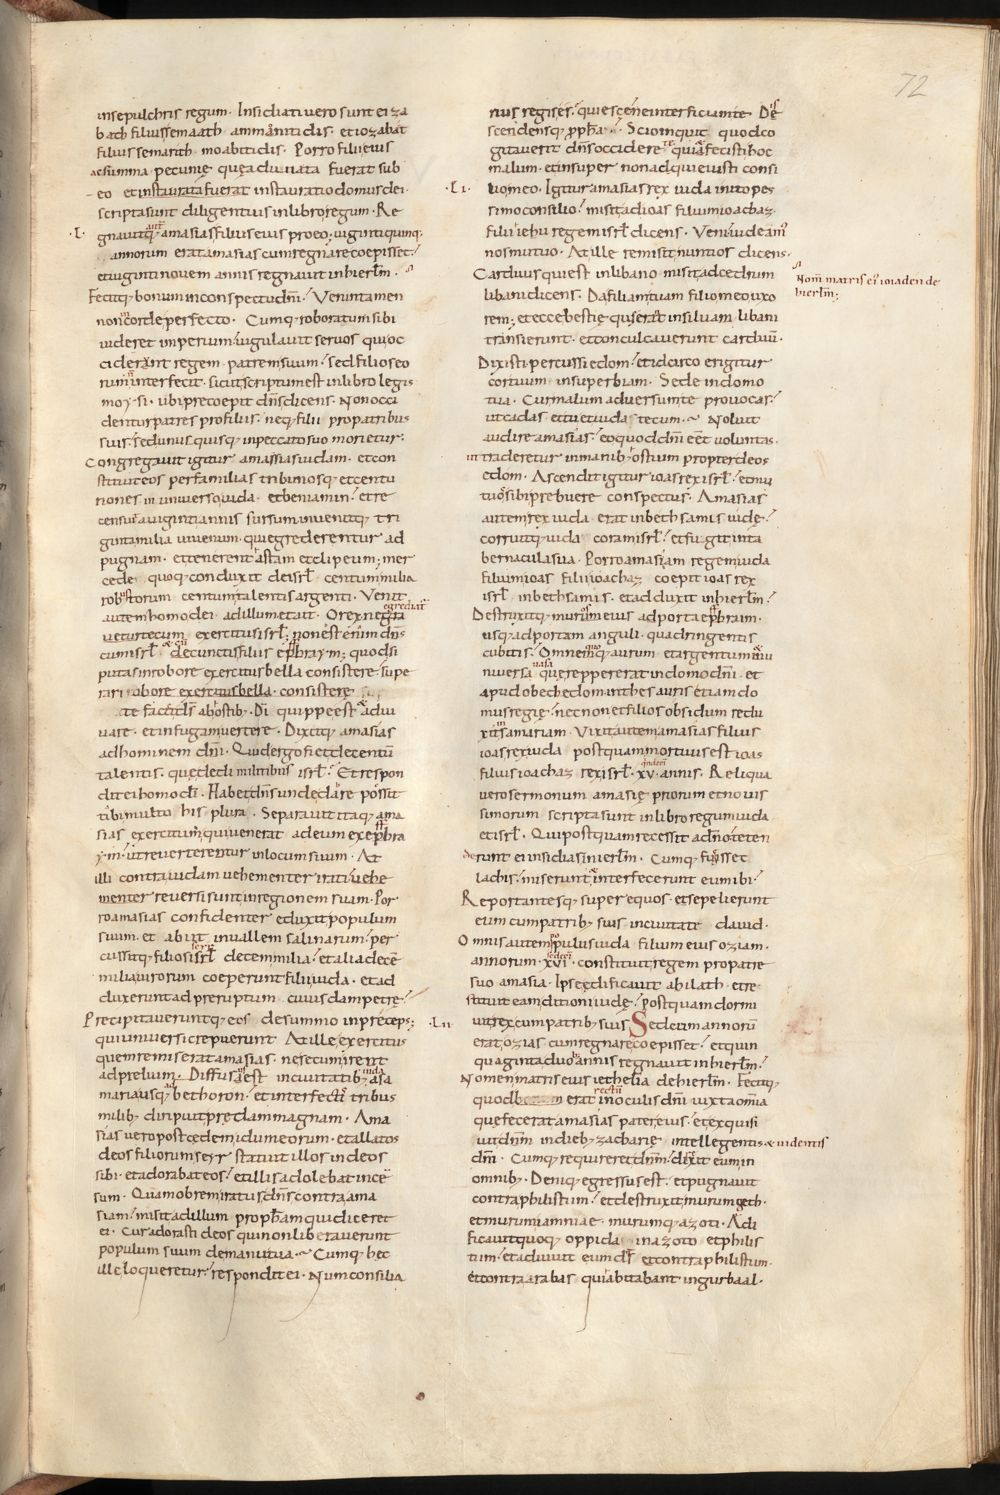 72
insepulchris regum. Insidiati vero sunt ei za
bath filius semaath ammanitidis. et iozabat
filius semarith moabitidis. Porro filii eius
ac summa pecunię quę adunata fuerat sub
eo et instaurata fuerat instauratio domus dei.
scripta sunt diligentius in libro regum. Re
.L. gnavitq; aut amasias filius eius pro eo. viginti quinq;
annorum erat amasias cum regnare coepisset.
et viginti novem annis regnavit in hierlm.
Fecitq; bonum in conspectu dni. Verumtamen
non corde perfecto. Cumq; roboratum sibi
videret imperium. iugulavit servos qui oc
ciderant regem patrem suum. sed filios eo
rum non interfecit. sicut scriptum est in libro legis
moysi. ubi precoepit dns dicens. Non occi
dentur patres pro filiis. neq; filii pro patribus
suis. sed unusquisq; in peccato suo morietur.
Congregavit igitur amassias iudam. et con
stituit eos per familias tribunosq; et centu
riones in universo iuda. et beniamin. et re
censuit a viginti annis sursum invenitq; tri
ginta milia iuvenum. qui egrederentur ad
pugnam. et tenerent astam et clipeum. mer
cede quoq; conduxit de isrl. centum milia
robustorum centum talentis argenti. Venit
autem homo dei ad illum et ait. O rex ne egrediat
vetur tecum exercitus isrl. non est enim dns
cum isrl. et cunctis filiis ephraym. quod si
putas in robore exercitus bella consistere. supe
rari robore exercitus bella consistere
te faciet ds ab hostib; Di quippe est adiu
vare. et in fugam vertere. Dixitq; amasias
ad hominem dni. Quid ergo fiet de centum
talentis. quę dedi militibus isrl. Et respon
dit ei homo di. Habet dns unde dare possit
tibi multo his plura. Separavit itaq; ama
sias exercitum. qui venerat ad eum ex ephra
ym. ut reverteretur in locum suum. At
illi contra iudam vehementer irati. vehe
menter reversi sunt in regionem suam. Por
ro amasias confidenter eduxit populum
suum. et abiit in vallem salinarum. per
cussitq; filios seir isrl decem milia. et alia decē
milia virorum coeperunt filii iuda. et ad
duxerunt ad preruptum cuiusdam petrę.
Precipitaveruntq; eos de summo in preceps.
qui universi crepuerunt. At ille exercitus
quem remiserat amasias. ne secum iret
ad prelium. Diffusus est in civitatib; iuda a sa
maria usq; ad bethoron. et interfectis tribus
milib; diripuit predam magnam. Ama
sias vero post cędem idumeorum. et allatos
deos filiorum seyr statuit illos in deos
sibi. et adorabat eos. et illis adolebat incē
sum. Quam ob rem iratus dns contra ama
siam. misit ad illum prophetam qui diceret
ei. Cur adorasti deos qui non liberaverunt
populum suum de manu tua. Cumq; hec
ille loqueretur. respondit ei. Num consilia
rius regis es. quiesce ne interficiam te. Dis
scendensq; propha. Scio inquit quod co
gitaverit dns occidere te. quia fecisti hoc
malum. et insuper non adquievisti consi
.LI. lio meo. Igitur amasias rex iuda inito pes
simo consilio. misit ad ioas filium ioachaz.
filii iehu regem isrl dicens. Veni videam;
nos mutuo. At ille remisit nuntios dicens.
Carduus qui est in libano misit ad cedrum
Nom matris ei; ioiaden de
hierlm;
libani dicens. Da filiam tuam filio meo uxo
rem. et ecce bestię quę erant in silvam libani
transierunt. et conculcaverunt carduū.
Dixisti percussi edom. et idcirco erigitur
cor tuum in superbiam. Sede in domo
tua. Cur malum adversum te provocas.
ut cadas et tu et iuda tecum. Noluit
audire amasias. eo quod dni eēt voluntas
ut traderetur in manib; ostium propter deos
edom. Ascendit igitur ioas rex isrl. et mu
tuos sibi prebuere conspectus. Amasias
autem rex iuda erat in bethsamis iudę.
corruitq; iuda coram isrl. et fugit in ta
bernacula sua. Porro amasiam regem iuda
filium ioas filii ioachaz coepit ioas rex
isrl in bethsamis. et adduxit in hierlm.
Destruxitq; murum eius ad porta ephraim.
usq; ad portam anguli. quadringentis
cubitis. Omnemq; aurum et argentum. & u
niversa vasa quę reppererat in domo dni. et
apud obededom in thesauris etiam do
mus regię. nec non et filios obsidum redu
xit in samariam. Vixit autem amasias filius
ioas rex iuda postquam mortuus est ioas
filius ioachaz rex isrl. xv. quindecī annis. Reliqua
vero sermonum amasię priorum et novis
simorum scripta sunt in libro regum iuda
et isrl. Qui postquam recessit a dno teten
derunt ei insidias in ierlm. Cumq; fugisset
lachis. miserunt & interfecerunt eum ibi.
Reportantesq; super equos. et sepelierunt
eum cum patrib; suis in civitate david.
Omnis autem populus iuda filium eius oziam.
annorum .xvi. sedecī constituit regem pro patre
suo amasia. Ipse edificavit ahilath. et re
stituit eam ditioni iudę. postquam dormi
.LII. vit rex cum patrib; suis Sedecim annorū
erat ozias cum regnare coepisset. et quin
quaginta duob; annis regnavit in hierlm.
Nomen matris eius iethelia de hierlm. Fecitq;
quod erat rectū in oculis dni iuxta omnia
quę fecerat amasias pater eius. et exquisi
vit dnm in dieb; zacharię intellegentis & videntis
dm. Cumq; requireret dnm. dixit eum in
omnib; Deniq; egressus est. et pugnavit
contra philistiim. et destruxit murum geth.
et murum iamniae. murumq; azoti. Ædi
ficavit quoq; oppida in azoto et philis
tiim. et adiuvit eum ds et contra philistiim.
et contra arabas qui abitabant in gurbaal.